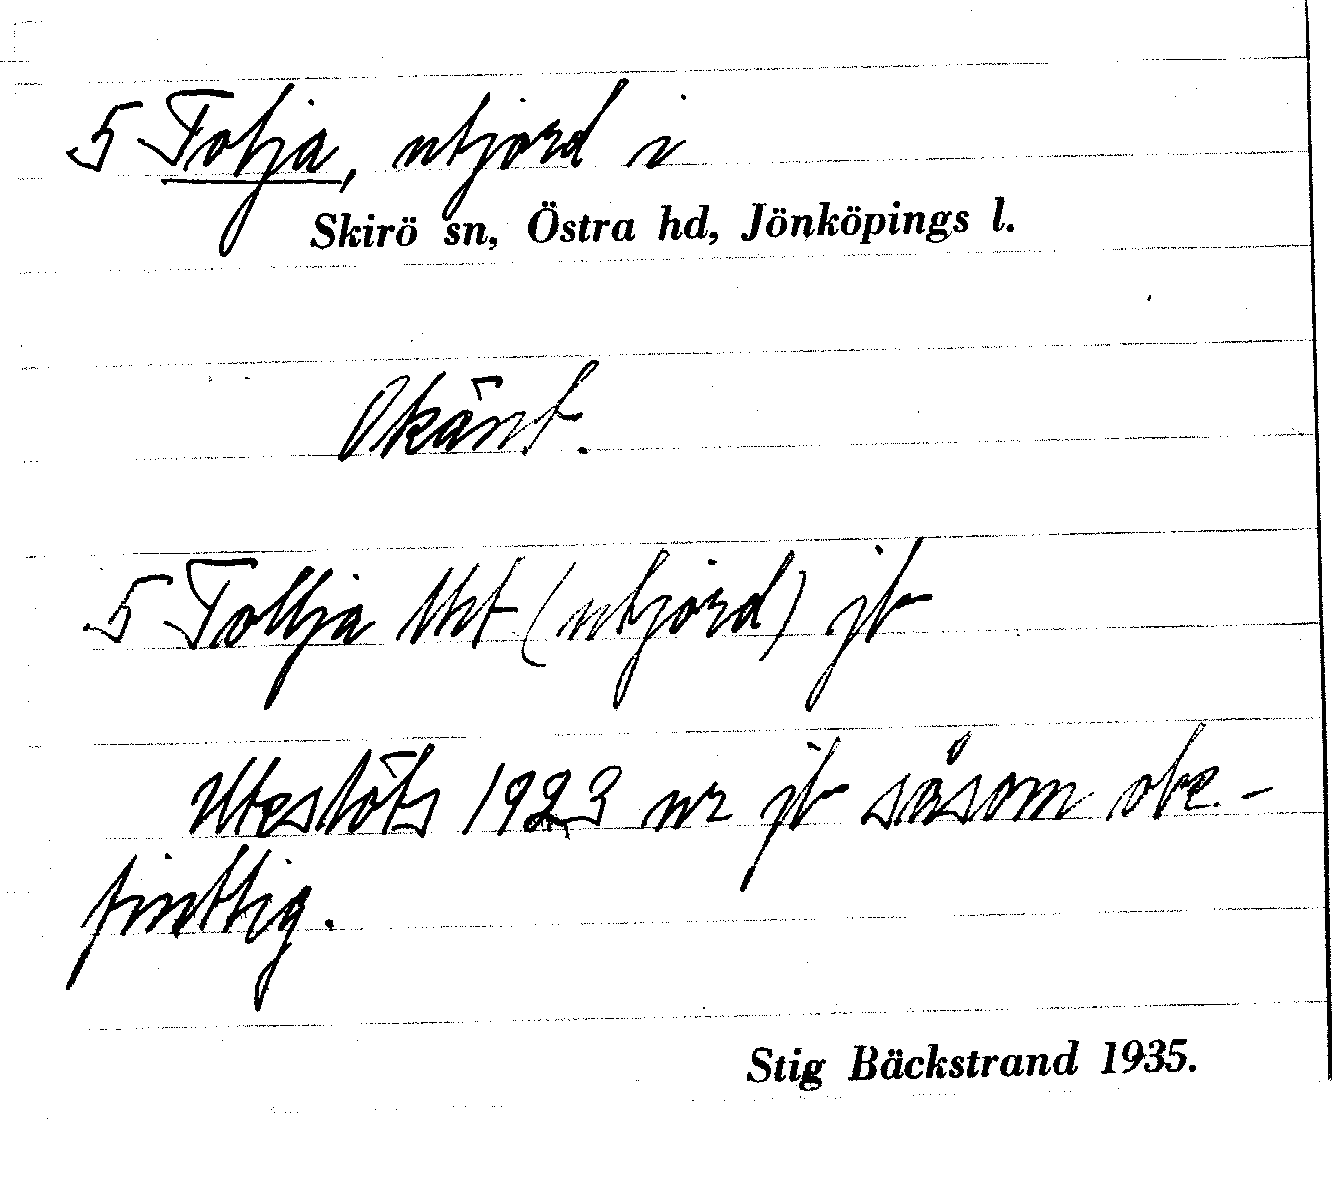 5 Tolja, utjord i
Skirö sn, Östra hd, Jönköpings l.
Okänt.
5 Tollja Utt (utjord) jb
Uteslöts 1923 ur jb såsom obe-
fintlig.
Stig Bäckstrand 1935.